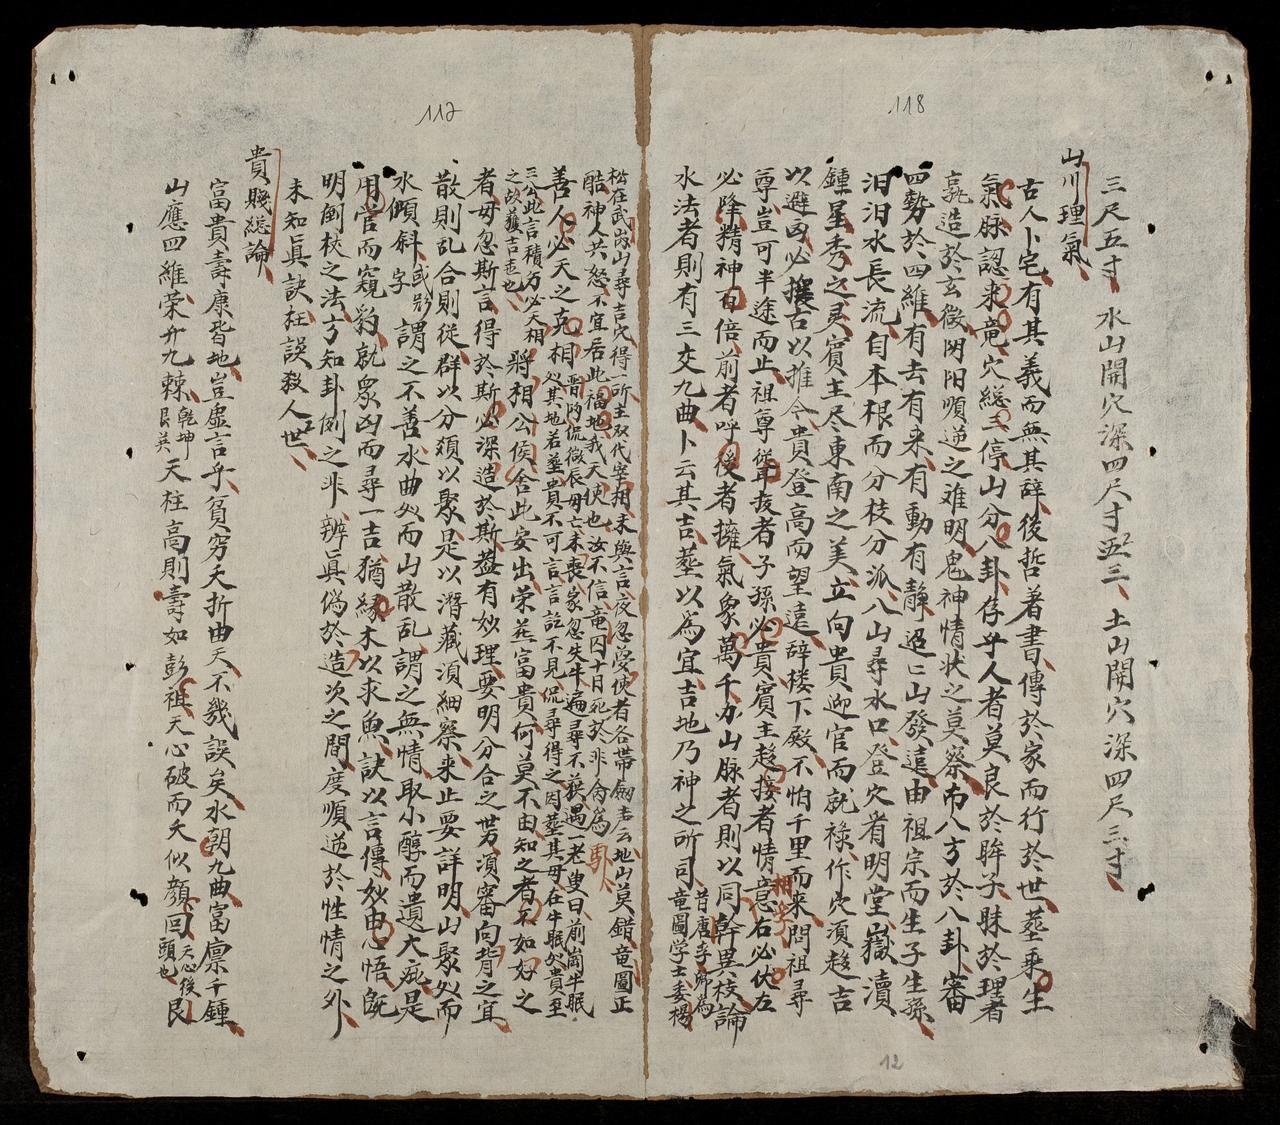 118
三尺五寸水山開穴深四尺寸五三土山開穴深四尺三寸
山川理氣
古人卜宅有其義而無其辞後哲著書傳於家而行於世葬乘生
氣脉認来竜穴総三停山分八卦存乎人者莫良於眸子昧於理者
孰造於玄微陰阳順逆之难明鬼神情状之莫察布八方於八卦審
四勢於四維有去有来有動有静迢〻山發遠由祖宗而生子生孫
汨汨水長流自本根而分枝分派八山尋水口登穴看明堂嶽瀆
鍾星秀之灵賓主尽東南之美立向貴迎官而就禄作穴須趍吉
以避凶必攘古以推今貴登高而望遠辞楼下殿不怕千里而来問祖尋
尊豈可半途而止祖尊從孩者子孫必貴賓主趍接者情意相孚右必伏左
必降精神百倍前者呼後者擁氣象萬千办山脉者則以同幹異枝論
水法者則有三交九曲卜云其吉葬以為宜吉地乃神之所司昔唐孚卿為竜圖学士委楊
12
112
松在武崗山尋吉穴得一所主双代宰相未與言夜忽夢使者各帯劍者云地山莫錯竜圖正
酷神人共怒不宜居此福地我天使也汝不信竜図十日死於非命為馭
善人必天之克相晋陶侃微辰母亡未喪家忽失牛遍尋不获遇老叟曰前崗牛眠
処其地若葬貴不可言言訖不見侃尋得之因葬其母在牛眠处貴至
三公此言積万必天相之故獲吉壟也將相公侯舍此安出荣華富貴何莫不由知之者不如好之
者毋忽斯言得於斯必深造於斯葢有妙理要明分合之势須審向背之宜
散則乱合則從群以分類以聚是以潛藏須細察来止要詳明山聚处而
水傾斜字謂之不善水曲处而山散乱謂之無情取小醇而遺大疵是
用官而窺豹就衆凶而尋一吉猶緣木以求魚訣以言傳妙由心悟既
明倒杖之法方知卦例之非辨真偽於造次之間度順逆於性情之外
未知真訣枉誤殺人世
貴賤総論
富貴壽康皆地豈虚言乎貧窮夭折由天不幾誤矣水朝九曲富禀千鍾
山應四維荣升九棘乾坤艮巽天柱高則壽如彭祖天心破而夭似顏回天心後頭也艮